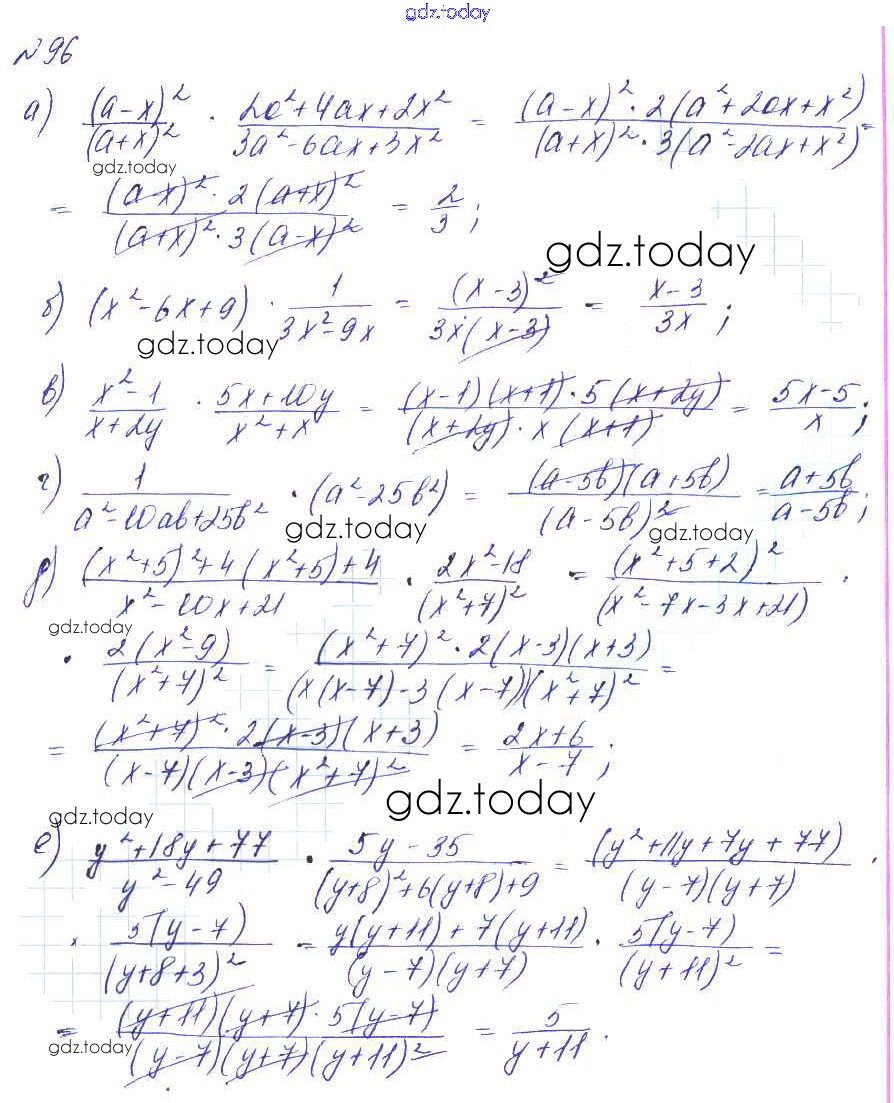 gdz.today
№96
а) (a-x)²/(a+x)² · 2a²+4ax+2x²/3a²-6ax+3x² = (a-x)²·2(a²+2ax+x²)/(a+x)²·3(a²-2ax+x²) =
gdz.today
= (a-x)²·2(a+x)²/(a+x)²·3(a-x)² = 2/3;
gdz.today
б) (x²-6x+9) · 1/3x²-9x = (x-3)²/3x(x-3) = x-3/3x;
gdz.today
в) x²-1/x+2y · 5x+10y/x²+x = (x-1)(x+1)·5(x+2y)/(x+2y)·x(x+1) = 5x-5/x;
г) 1/a²-10ab+25b² · (a²-25b²) = (a-5b)(a+5b)/(a-5b)² = a+5b/a-5b;
gdz.today gdz.today
д) (x²+5)²+4(x²+5)+4/x²-10x+21 · 2x²-18/(x²+7)² = (x²+5+2)²/(x²-7x-3x+21) ·
gdz.today
· 2(x²-9)/(x²+7)² = (x²+7)²·2(x-3)(x+3)/(x(x-7)-3(x-7))(x²+7)² =
= (x²+7)²·2(x-3)(x+3)/(x-7)(x-3)(x²+7)² = 2x+6/x-7;
gdz.today
gdz.today
е) y²+18y+77/y²-49 · 5y-35/(y+8)²+6(y+8)+9 = (y²+11y+7y+77)/(y-7)(y+7) ·
× 5(y-7)/(y+8+3)² = y(y+11)+7(y+11)/(y-7)(y+7) · 5(y-7)/(y+11)² =
= (y+11)(y+7)·5(y-7)/(y-7)(y+7)(y+11)² = 5/y+11.
gdz.today